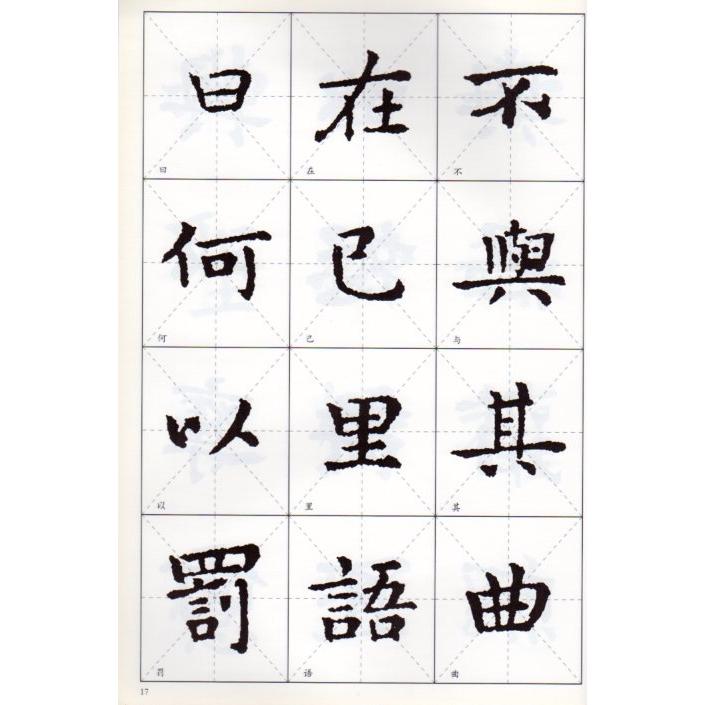 曰 在 不
曰 在 不
何 已 與
何 已 与
以 里 其
以 里 其
罰 語 曲
罚 语 曲
17